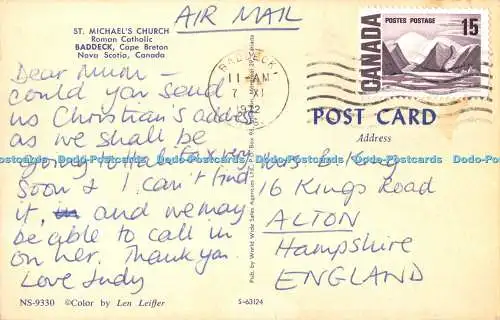 AIR MAIL
ST. MICHAEL'S CHURCH
Roman Catholic
BADDECK, Cape Breton
Nova Scotia, Canada
Dear Mum –
could you send
us Christian's address
as we shall be
going to Halifax very
soon & I can't find
it, and we may
be able to call in
on her. Thank you.
Love Judy
NS-9330 ©Color by Len Leiffer
Pub. by World Wide Sales Agencies Ltd.
S-63124
BADDECK
11 AM
7 XI
1972
CANADA
POSTES POSTAGE
15
POST CARD
Address
Mrs B. King
16 Kings Road
ALTON
Hampshire
ENGLAND
Dodo-Postcards Dodo-Postcards Dodo-Postcards Dodo-Postcards Dodo-Postcards